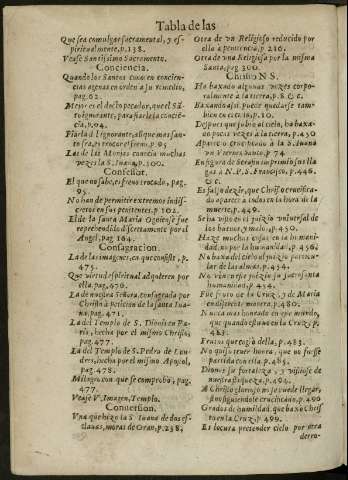 Tabla de las
Que sea comulgar sacramental, y espiritualmente, p.138.
Vease Santissimo Sacramento.
Conciencia.
Quando los Santos en conciencias agenas en orden a su
pag.62.
Mejor es el docto pecador, que el Santo ignorante, para fiarle la conciencia, p.94.
Fiarla del ignorante, aũ que mas santo sea, es p.95
Las de las Monjas conocia muchas vezes la S. Iuana, p.100.
Confessar.
El que no sabe, es freno trocado, pag.
95.
No han de permitir extremos indiscretos en sus penitentes, p.102.
El de la santa Maria Ogniense fue
reprehendido discretamente por el
Angel, pag 164.
Consagracion.
La de las imagenes, en que consiste, p.
475.
Que virtud espiritual adquieren por
ella, pag. 476.
La de nuestra Señora, consagrada por
Christo à peticion de la santa Iuana, pag. 471.
La del Templo de S. Dionis en Paris, hecha por el mismo Christo,
pag. 477.
La del Templo de S. Pedro de Londres, hecha por el mismo Apostol,
pag. 478.
Milagro con que se comprobò, pag.
477.
Vease V. Imagen, Templo.
Conversion.
Vna que hizo la S. Iuana de dos esclavas, moras de Oran, p.238.
Otra de vn Religioso reducido por
ella à penitencia, p.210.
Otra de vna Religiosa por la misma
Santa, pag 300.
Christo N S.
Ha baxado algunas vezes corporalmente à la tierra, p. 8. &c.
Baxando assi puede quedarse tambien en el cielo, p.10.
Despues que subio al cielo, ha baxado pocas vezes à la tierra, p.450
Aparecio crucificado à la S. Iuana
vn Viernes Santo, p. 74
En figura de Serafin imprimio sus llagas à N.P.S. Francisco, p.446.
&c.
Es falso dezir, que Christo crucificado aparece a todos en la hora de la
muerte, p.449.
Se ha visto en el juizio vniversal de
los buenos, y malos, p.450.
Haze muchas cosas en la humanidad, no por la humanidad, p.456.
No baxa del cielo al juizio particular de las almas, p.454.
No viene este juizio su sacrosanta
humanidad, p.454.
Fue fruto de la Cruz, y de Maria
en diferente manera, p.480.
Nunca mas honrado en este mundo,
que quando estuvo en la Cruz, p.
483.
Frutos que cogiò della, p. 483.
No quiso tener honra, que no fuesse
partida con ella, p. 485.
Dionos su fortaleza, y vistiose de
nuestra flaqueza, p.484.
A Christo glorioso no se puede llegar,
sino siguiendole crucificado, p. 490
Grados de humildad que baxò Christo en la Cruz, p. 499.
Es locura pretender cielo por otra
derro-